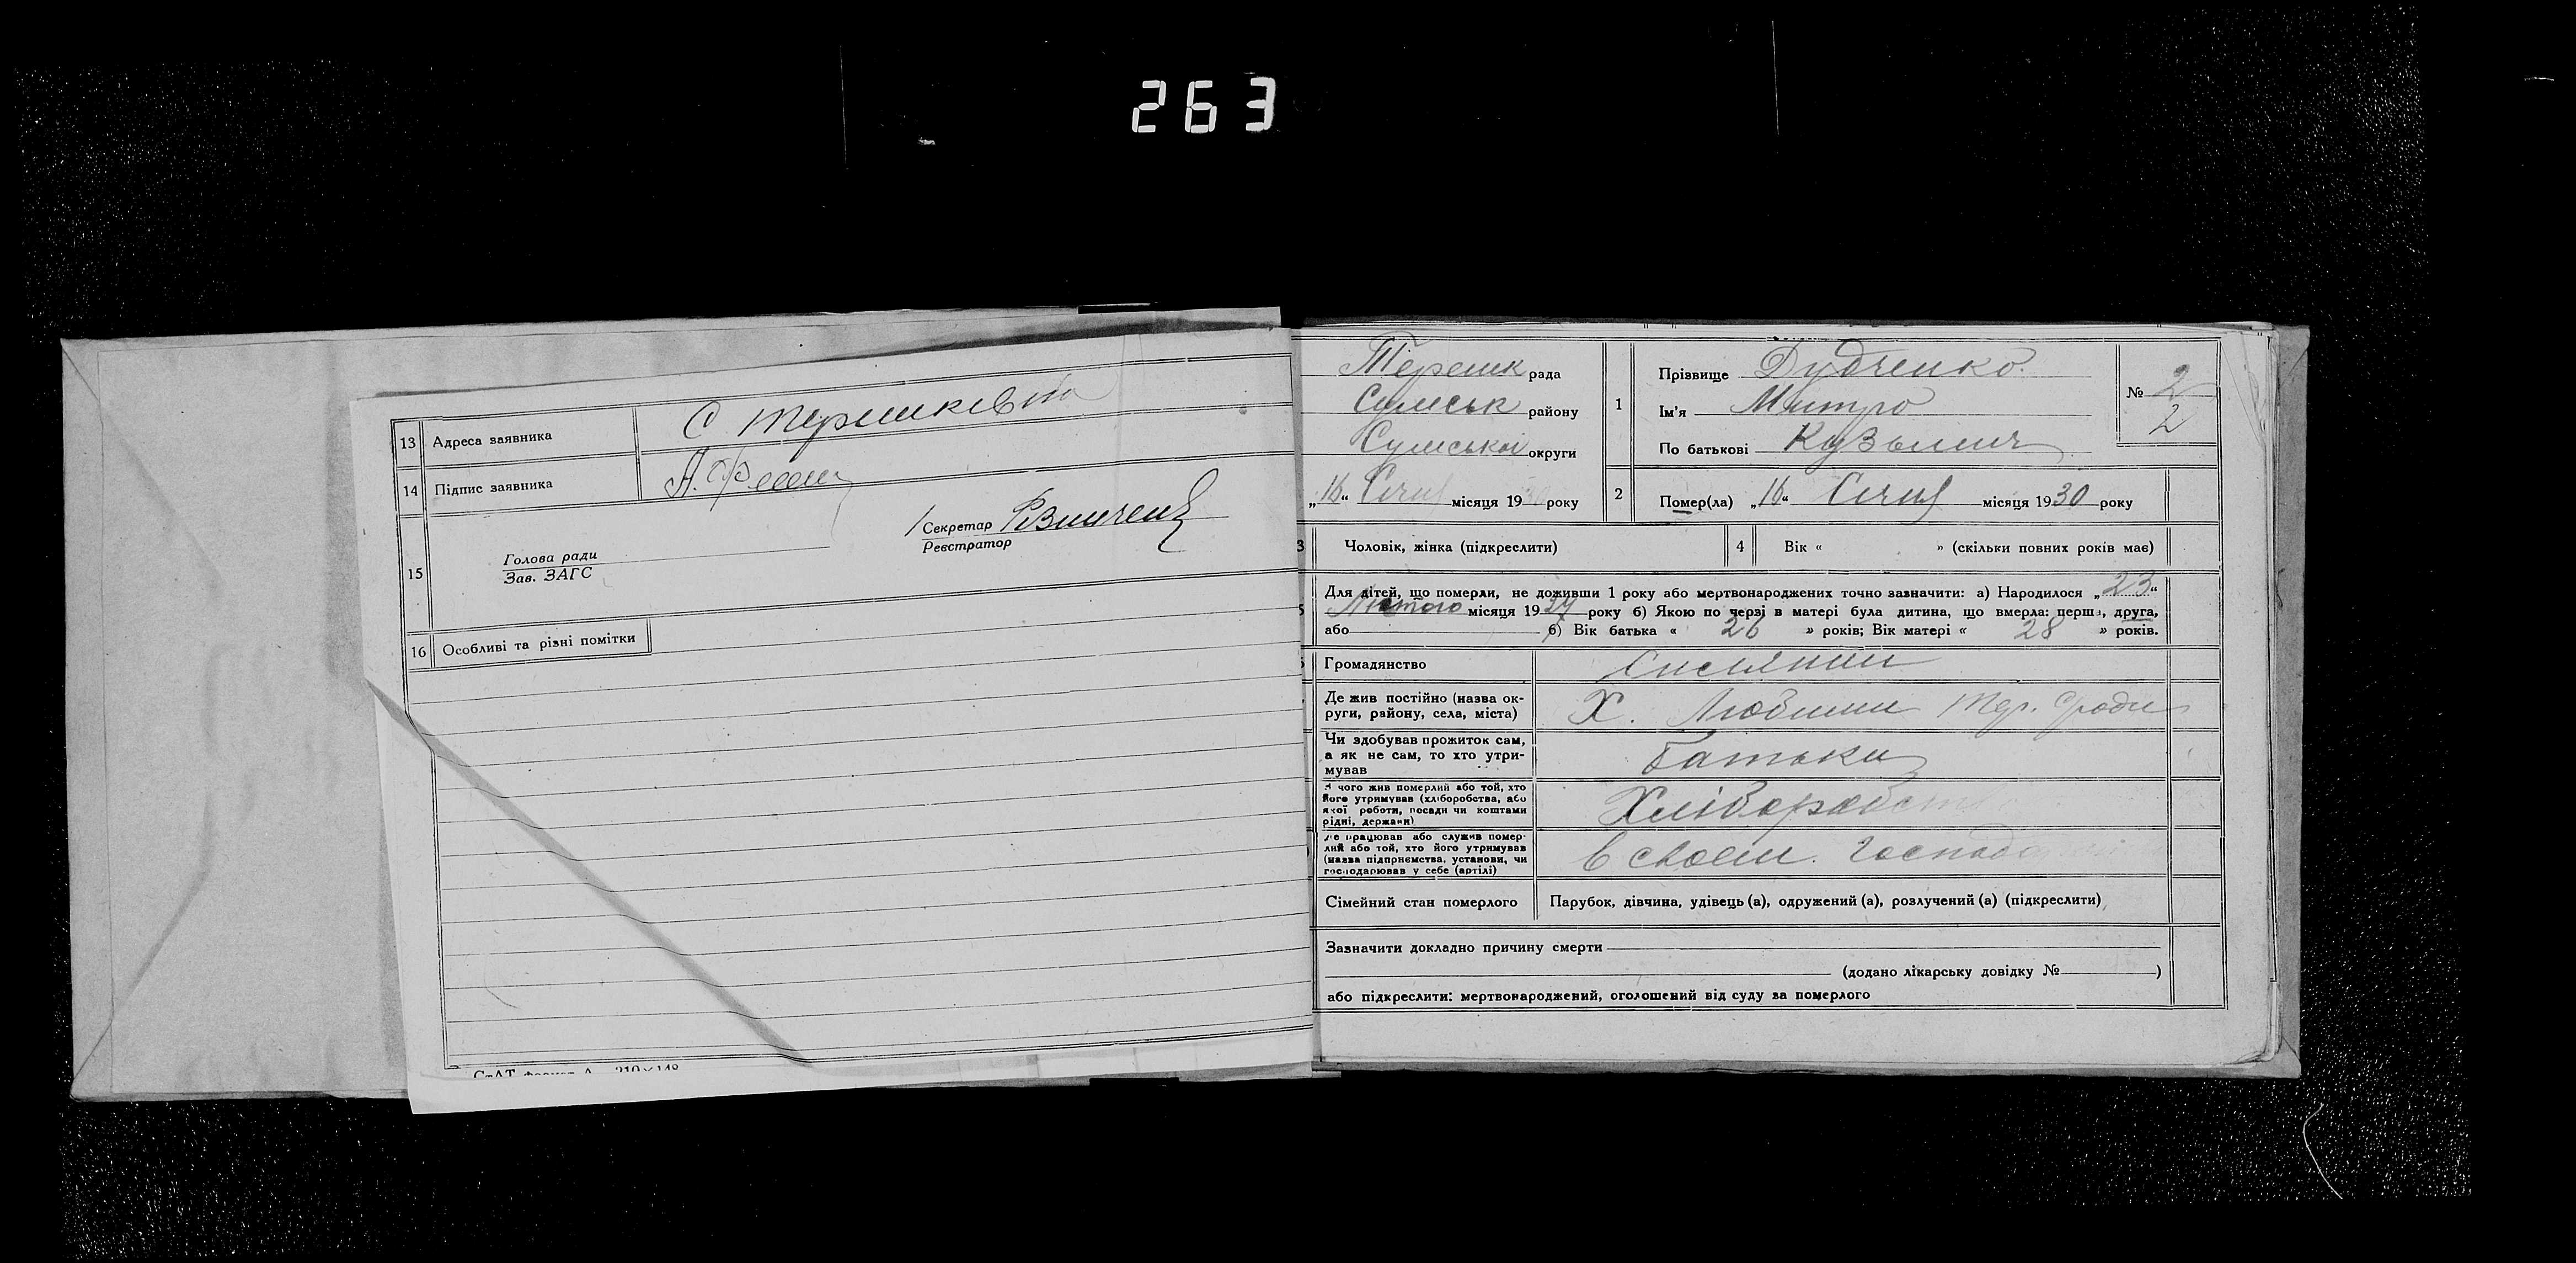 263
13 Адреса заявника С Терешківка
14 Підпис заявника
15 Голова ради
Зав. ЗАГС
Секретар
Реєстратор
16 Особливі та різні помітки
Терешк рада
Сумськ району
Сумської округи
„16“ Січня місяця 1930 року
1 Прізвище Дудченко
Ім'я Митро
По батькові Кузьмич
№ 2
2
2 Помер(ла) „16“ Січня місяця 1930 року
3 Чоловік, жінка (підкреслити)
4 Вік « » (скільки повних років має)
Для дітей, що померли, не доживши 1 року або мертвонароджених точно зазначити: а) Народилося „23“
Лютого місяця 19 року б) Якою по черзі в матері була дитина, що вмерла: перша, друга,
або б) Вік батька « 26 » років; Вік матері « 28 » років.
Громадянство
Де жив постійно (назва ок-
руги, району, села, міста) Х.
Чи здобував прожиток сам,
а як не сам, то хто утри-
мував Батьки
З чого жив померлий або той, хто
його утримував (хліборобства, або
якої роботи, посади чи коштами
рідні, держави) Хліборобств
Де працював або служив помер-
лий або той, хто його утримував
(назва підприємства, установи, чи
господарював у себе (артілі) в своем. господа
Сімейний стан померлого Парубок, дівчина, удівець (а), одружений (а), розлучений (а) (підкреслити)
Зазначити докладно причину смерти
(додано лікарську довідку № )
або підкреслити: мертвонароджений, оголошений від суду за померлого